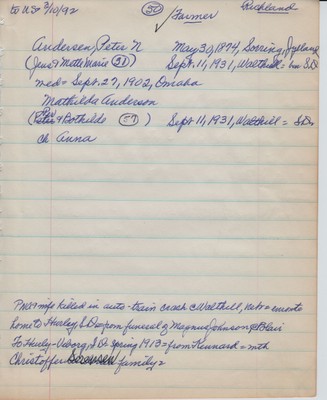 to U.S. 3/10/92 (50) Farmer Richland
Andersen, Peter N May 30, 1874, Sorring, Jylland
(Jens & Mette Marie (51)) Sept. 11, 1931, Walthill = S.D.
med = Sept. 27, 1902, Omaha
Mathilda Anderson
Per
(Peter & Bothilde (57)) Sept 11, 1931, Walthill = S.D.
ch Anna
PN&& wife killed in auto-train crash @ Walthill, Nebr = enroute
home to Hurley S.D. from funeral of Magnus Johnson @ Blair
To Hurley-Viborg, S.D. spring 1913 = from Kennard = mth
Christoffer Sorensen family =